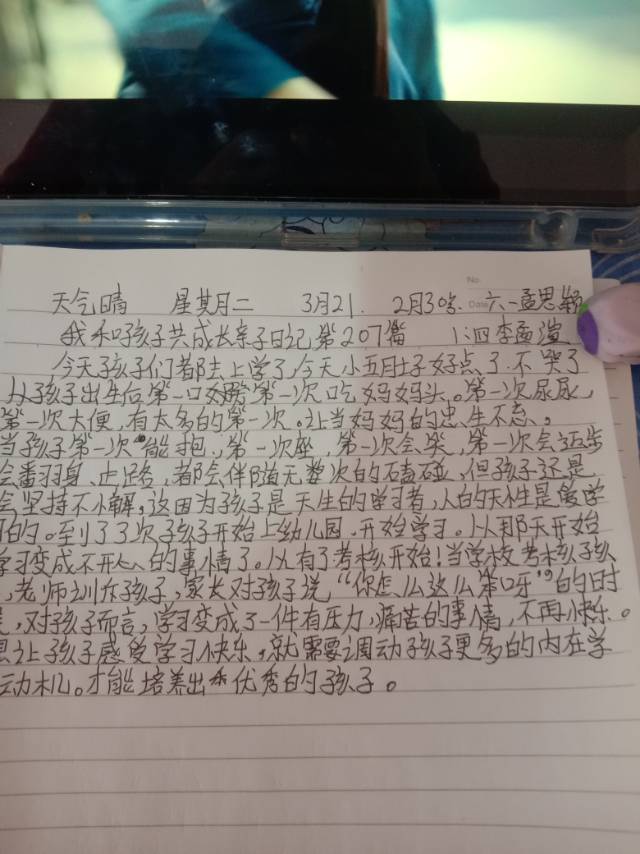 No.
Date
天气晴 星期二 3月21. 2月30 六一孟思颖
我和孩子共成长亲子日记第207篇 1:四李孟渲
今天孩子们都去上学了,今天小五肚子好点了不哭了
从孩子出生后第一口奶第一次吃妈妈头。第一次尿尿,
第一次大便,有太多的第一次。让当妈妈的忠生不忘。
当孩子第一次能抱,第一次座,第一次会笑,第一次会迈步
会番羽身、走路,都会伴随无数次的磕碰,但孩子还是
会坚持不懈,这因为孩子是天生的学习者,人的天性是爱学
习的。到了3次孩子开始上幼儿园.开始学习。从那天开始
学习变成不开心的事情了。从有了考核开始!当学校考核孩
,老师训斥孩子,家长对孩子说“你怎么这么笨呀”的时
候,对孩子而言,学习变成了一件有压力,痛苦的事情,不再快乐。
想让孩子感受学习快乐,就需要调动孩子更多的内在学
动机。才能培养出优秀的孩子。